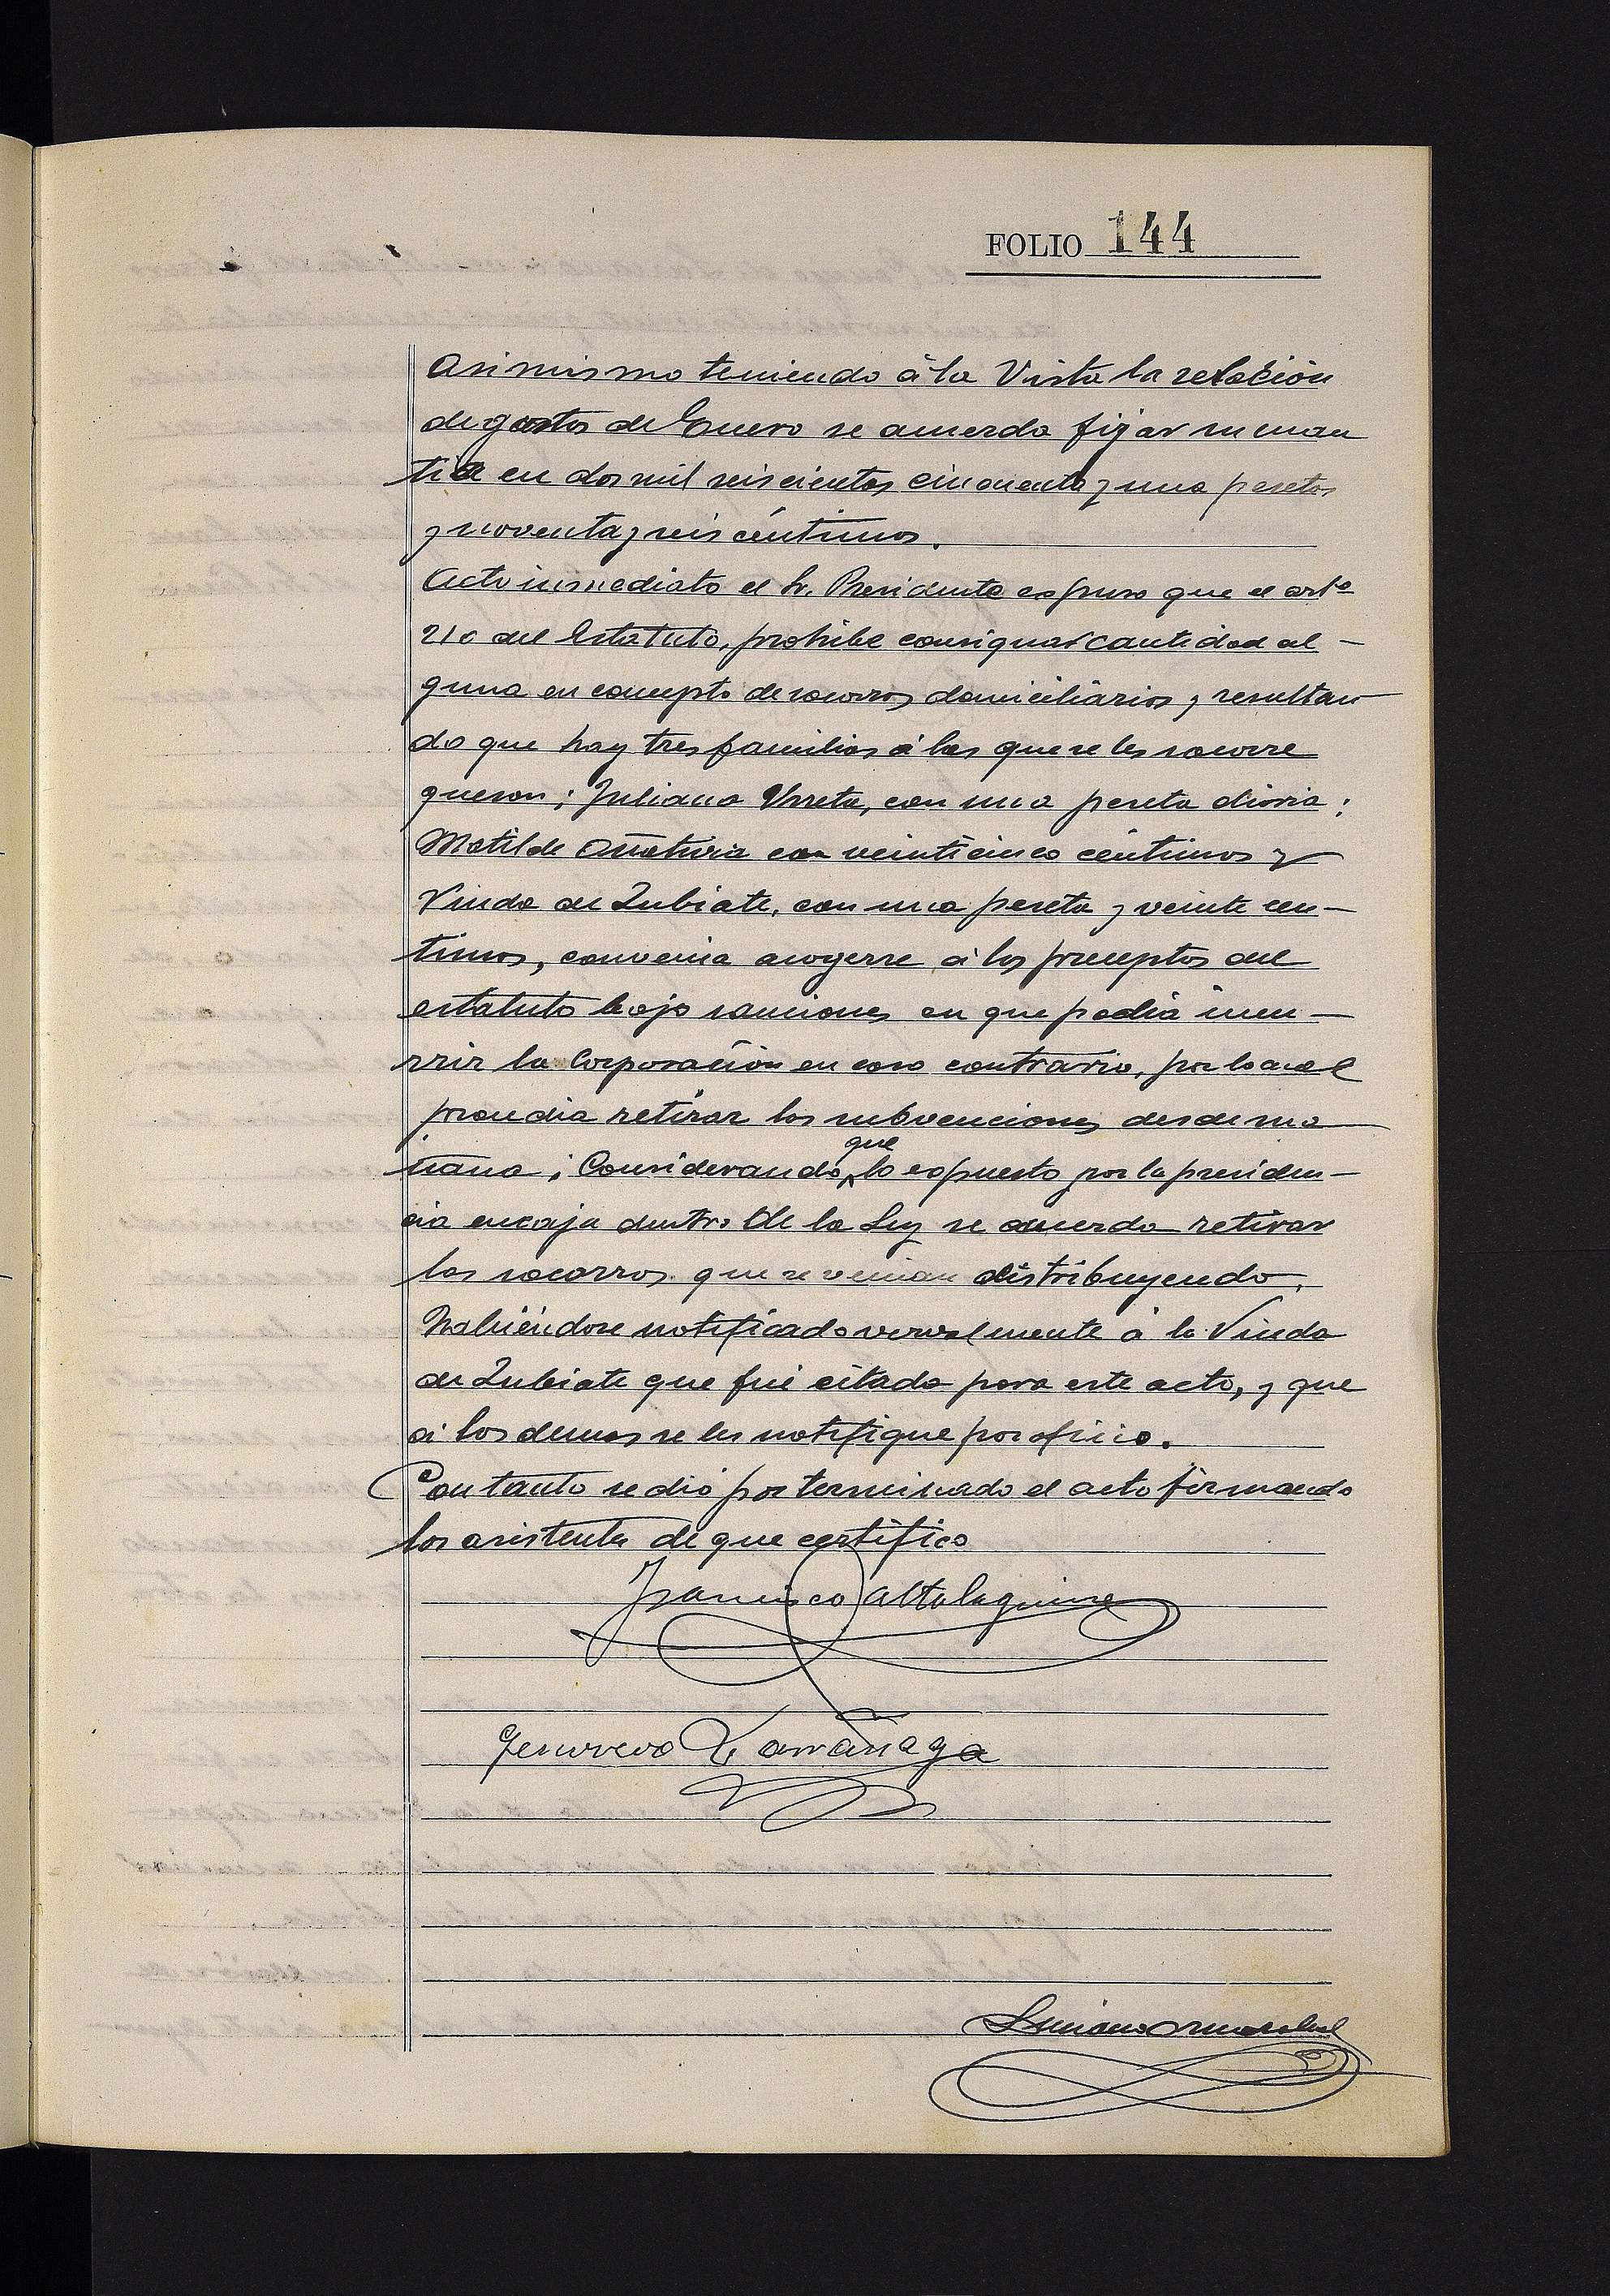 FOLIO 144
Asimismo teniendo á la Vista la relación
de gastos de Enero se acuerda fijar su cuan
tia en dos mil seiscientas cincuenta y una pesetas
y noventa y seis céntimos.
Acto inmediato el Sr. Presidente espuso que el artº
210 del Estatuto, prohibe consignar cantidad al -
guna en concepto de socorros domiciliarios y resultan
do que hay tres familias á las que se les socorre
que son; Juliana Urreta, con una peseta diaria;
Matilde con veinticinco céntimos y
Viuda de Zubiate, con una peseta y veinte cen -
timos, convenia acogerse á los preceptos del
estatuto bajo sanciones en que podia incu -
rrir la Corporación en caso contrario, por lo cual
procedia retirar las subvenciones desde ma
ñana; Considerando que lo espuesto por la presiden -
cia encaja dentro de la Ley se acuerda retirar
los socorros que se venian distribuyendo.
Habiéndose notificado verbalmente á la Viuda
de Zubiate que fué citada para este acto, y que
á los demas se les notifique por oficio.
Con tanto se dió por terminado el acto firmando
los asistentes de que certifico
Francisco Altolaguirre
Larrañaga
Luciano